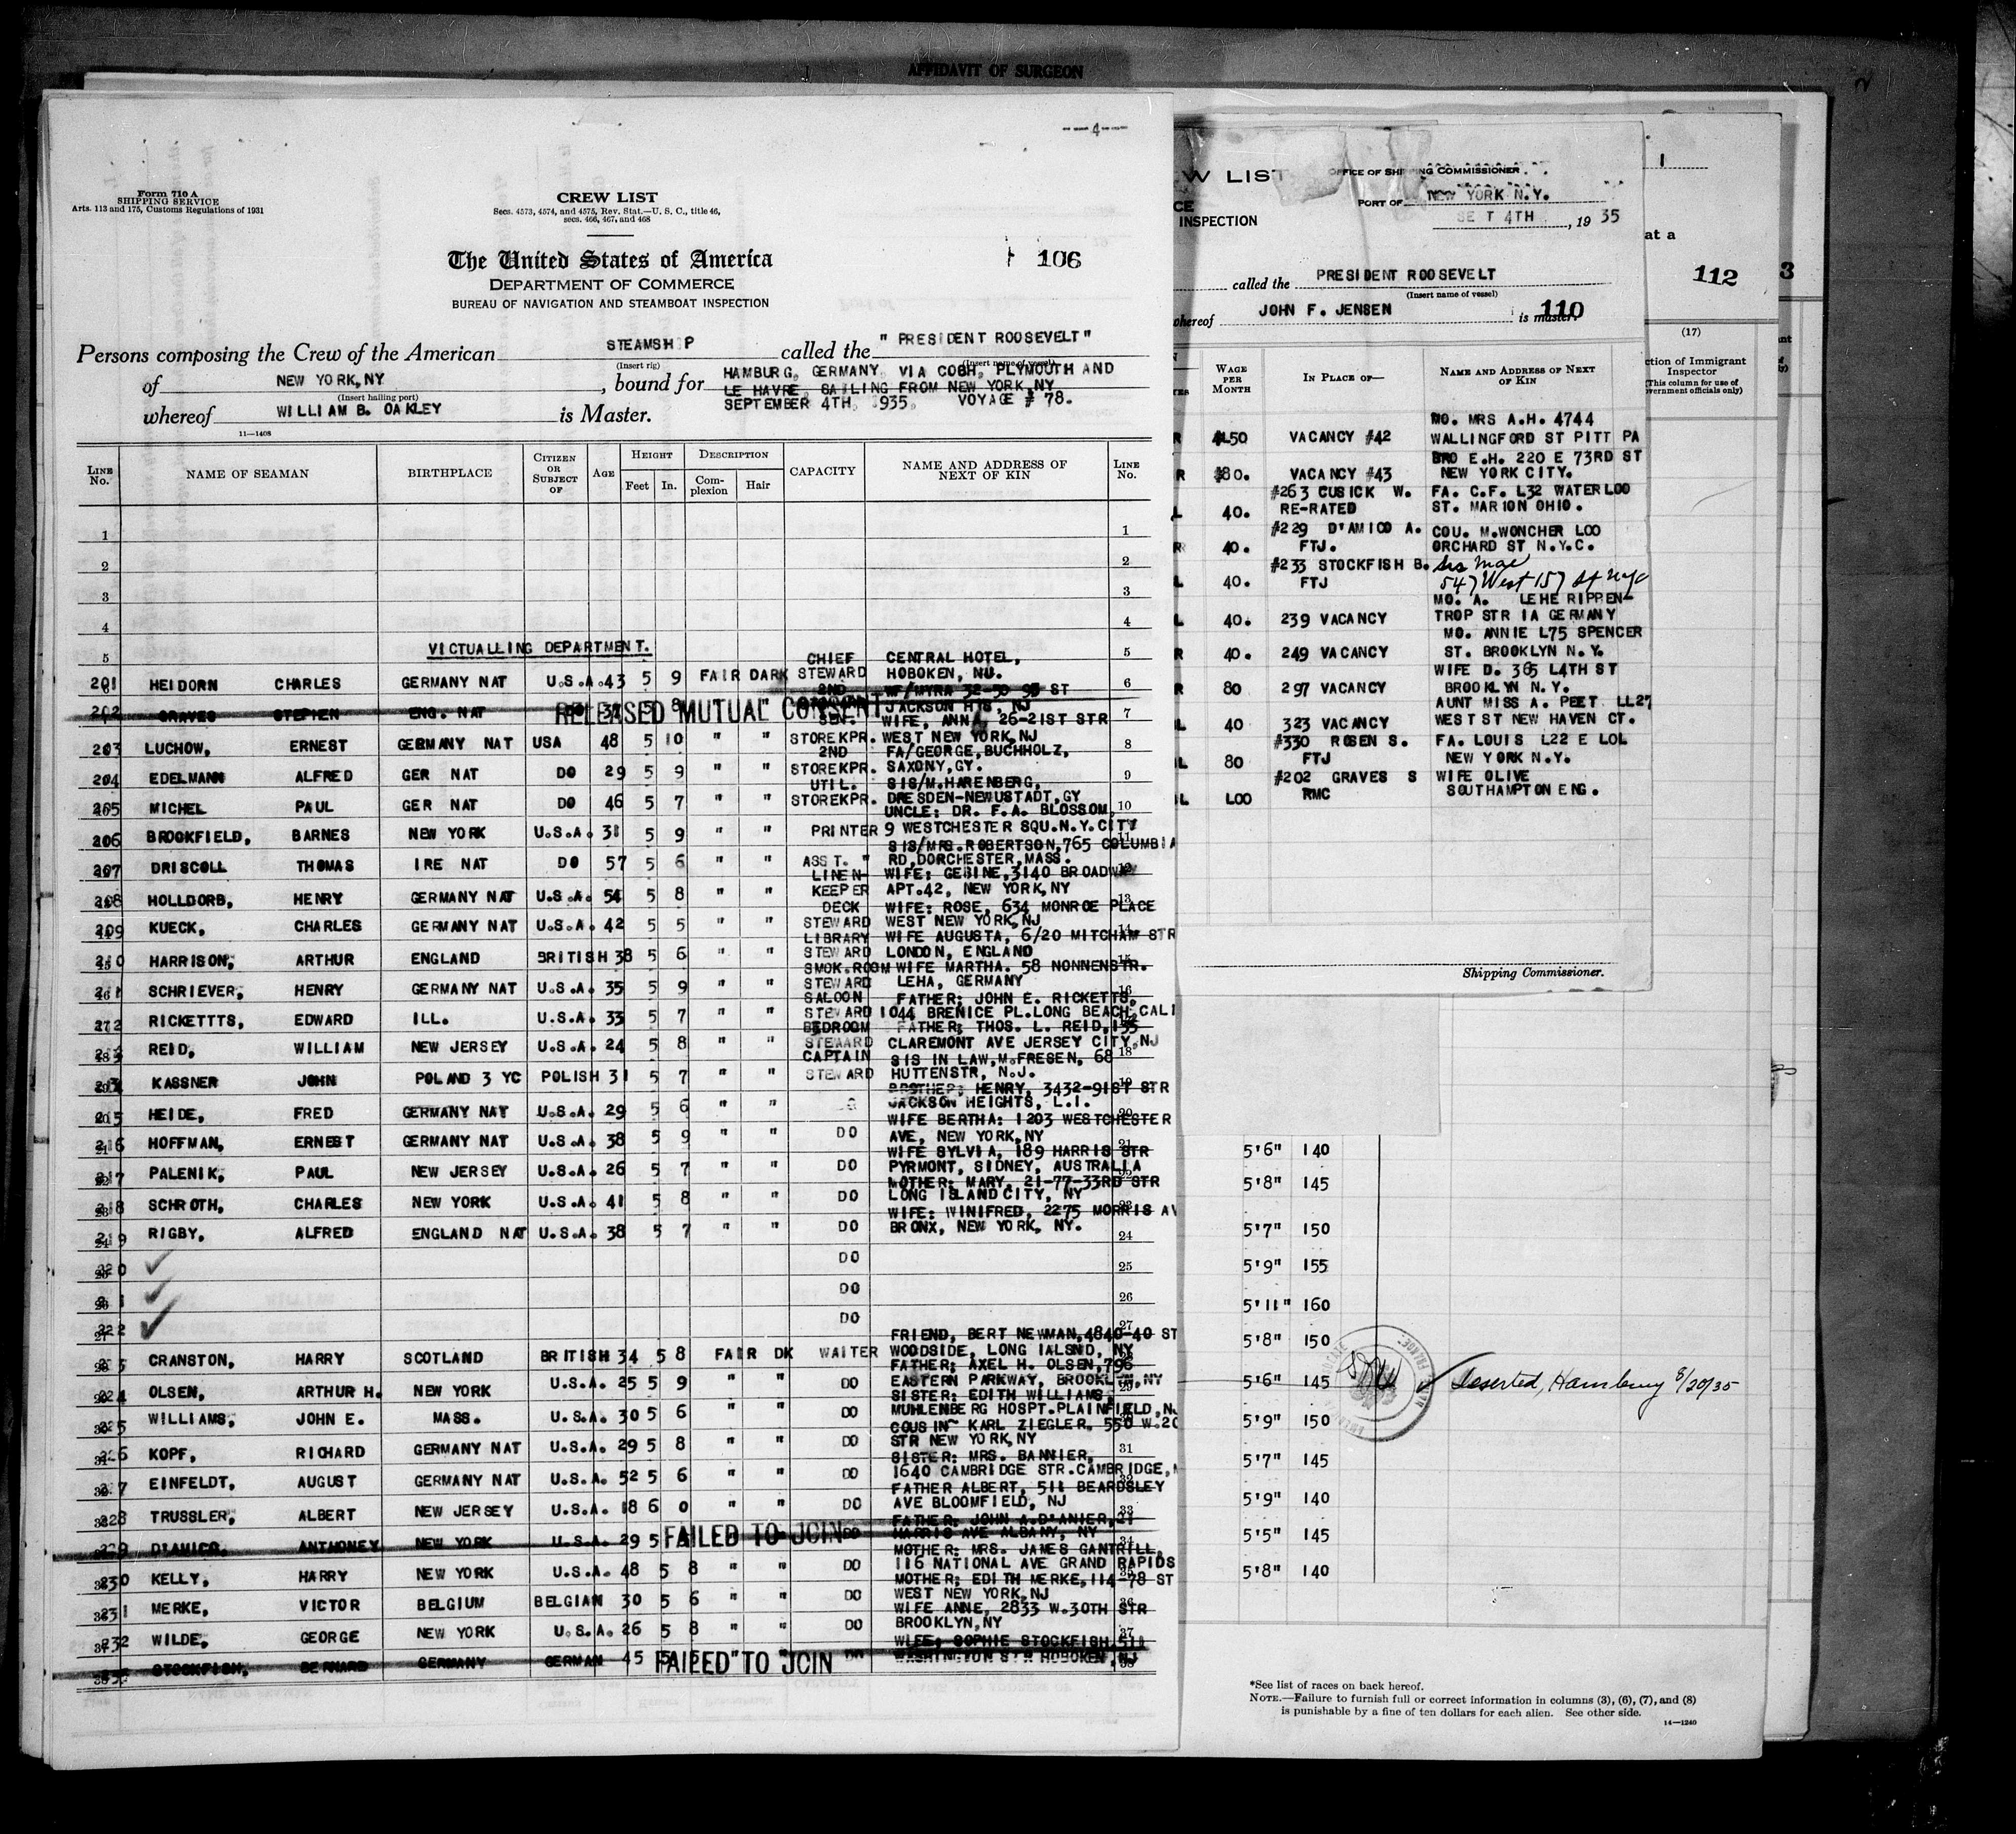 AFFIDAVIT OF SURGEON
---4---
Form 710 A
SHIPPING SERVICE
Arts. 113 and 175, Customs Regulations of 1931
CREW LIST
Secs. 4573, 4574, and 4575, Rev. Stat.—U. S. C., title 46,
secs. 466, 467, and 468
The United States of America
DEPARTMENT OF COMMERCE
BUREAU OF NAVIGATION AND STEAMBOAT INSPECTION
106
Persons composing the Crew of the American STEAMSH P called the " PRESIDENT ROOSEVELT "
(Insert rig) (Insert name of vessel)
of NEW YORK,NY , bound for HAMBURG, GERMANY, VIA COBH, PLYMOUTH AND
(Insert hailing port) LE HAVRE, SAILING FROM NEW YORK,NY
whereof WILLIAM B. OAKLEY is Master. SEPTEMBER 4TH, 1935, VOYAGE # 78.
11—1408
LINE No. NAME OF SEAMAN BIRTHPLACE CITIZEN OR SUBJECT OF AGE HEIGHT Feet In. DESCRIPTION Complexion Hair CAPACITY NAME AND ADDRESS OF NEXT OF KIN LINE No.
1 1
2 2
3 3
4 4
5 VICTUALLING DEPARTMENT. 5
201 HEIDORN CHARLES GERMANY NAT U.S.A. 43 5 9 FAIR DARK CHIEF STEWARD CENTRAL HOTEL, HOBOKEN, NU. 6
202 GRAVES STEPHEN ENG. NAT RELEASED MUTUAL CONSENT 2ND JACKSON HTS, NJ 7
203 LUCHOW, ERNEST GERMANY NAT USA 48 5 10 " " SEN. STOREKPR. WIFE, ANNA, 26-21ST STR WEST NEW YORK,NJ 8
204 EDELMANN ALFRED GER NAT DO 29 5 9 " " 2ND STOREKPR. FA/GEORGE, BUCHHOLZ, SAXONY,GY. 9
205 MICHEL PAUL GER NAT DO 46 5 7 " " UTIL. STOREKPR. SIS/M.HARENBERG, DRESDEN-NEWUSTADT,GY 10
206 BROOKFIELD, BARNES NEW YORK U.S.A. 31 5 9 " " PRINTER UNCLE: DR. F.A. BLOSSOM, 9 WESTCHESTER SQU.N.Y.CITY 11
207 DRISCOLL THOMAS IRE NAT DO 57 5 6 " " ASST. " SIS/MRS.ROBERTSON,765 COLUMBIA RD,DORCHESTER,MASS. 12
208 HOLLDORB, HENRY GERMANY NAT U.S.A. 54 5 8 " " LINEN KEEPER WIFE: GEBINE,3140 BROADWAY APT.42, NEW YORK,NY 13
209 KUECK, CHARLES GERMANY NAT U.S.A. 42 5 5 " " DECK STEWARD WIFE: ROSE, 634 MONROE PLACE WEST NEW YORK,NJ 14
210 HARRISON, ARTHUR ENGLAND BRITISH 38 5 6 " " LIBRARY STEWARD WIFE AUGUSTA, 6/20 MITCHAM STR LONDON, ENGLAND 15
211 SCHRIEVER, HENRY GERMANY NAT U.S.A. 35 5 9 " " SMOK.ROOM STEWARD WIFE MARTHA. 58 NONNENSTR. LEHA, GERMANY 16
212 RICKETTTS, EDWARD ILL. U.S.A. 33 5 7 " " SALOON STEVARD FATHER; JOHN E. RICKETTS, 1044 BRENICE PL.LONG BEACH,CALI 17
213 REID, WILLIAM NEW JERSEY U.S.A. 24 5 8 " " BEDROOM STEWARD FATHER; THOS. L. REID,155 CLAREMONT AVE JERSEY CITY,NJ 18
214 KASSNER JOHN POLAND 3 YC POLISH 31 5 7 " " CAPTAIN STEWARD SIS IN LAW,M.FRESEN, 68 HUTTENSTR, N.J. 19
215 HEIDE, FRED GERMANY NAT U.S.A. 29 5 6 " " BROTHER; HENRY, 3432-91ST STR JACKSON HEIGHTS, L.I. 20
216 HOFFMAN, ERNEST GERMANY NAT U.S.A. 38 5 9 " " DO WIFE BERTHA: 1203 WESTCHESTER AVE, NEW YORK,NY 21
217 PALENIK, PAUL NEW JERSEY U.S.A. 26 5 7 " " DO WIFE SYLVIA, 189 HARRIS STR PYRMONT, SIDNEY, AUSTRALLA 22
218 SCHROTH, CHARLES NEW YORK U.S.A. 41 5 8 " " DO MOTHER: MARY, 21-77-33RD STR LONG ISLANDCITY, NY 23
219 RIGBY, ALFRED ENGLAND NAT U.S.A. 38 5 7 " " DO WIFE: WINIFRED, 2275 MORRIS AV BRONX, NEW YORK, NY. 24
220 ✓ DO 25
✓ DO 26
222 ✓ DO 27
CRANSTON, HARRY SCOTLAND BRITISH 34 5 8 FAIR DK WAITER FRIEND, BERT NEWMAN,4840-40 ST WOODSIDE, LONG IALSND, NY
224 OLSEN, ARTHUR H. NEW YORK U.S.A. 25 5 9 " " DO FATHER; AXEL H. OLSEN,796 EASTERN PARKWAY, BROOKLYN,NY 29
225 WILLIAMS, JOHN E. MASS. U.S.A. 30 5 6 " " DO SISTER: EDITH WILLIAMS, MUHLENBERG HOSPT.PLAINFIELD,NJ
226 KOPF, RICHARD GERMANY NAT U.S.A. 29 5 8 " " DO COUSIN~ KARL ZIEGLER, 550 W.20 STR NEW YORK,NY 31
227 EINFELDT, AUGUST GERMANY NAT U.S.A. 52 5 6 " " DO SISTER: MRS. BANNIER, 1640 CAMBRIDGE STR.CAMBRIDGE, 32
228 TRUSSLER, ALBERT NEW JERSEY U.S.A. 18 6 0 " " DO FATHER ALBERT, 511 BEARDSLEY AVE BLOOMFIELD, NJ 33
D'AMICO, ANTHONEY NEW YORK U.S.A. 29 5 FAILED TO JOIN DO FATHER: JOHN A.D'ANIER,21 HARRIS AVE ALBANY, NY 34
230 KELLY, HARRY NEW YORK U.S.A. 48 5 8 " " DO MOTHER: MRS. JAMES GANTRILL, 116 NATIONAL AVE GRAND RAPIDS 35
231 MERKE, VICTOR BELGIUM BELGIAN 30 5 6 " " DO MOTHER; EDITH MERKE,114-78 ST WEST NEW YORK,NJ 36
232 WILDE, GEORGE NEW YORK U.S.A. 26 5 8 " " DO WIFE ANNE, 2833 W.30TH STR BROOKLYN,NY 37
STOCKFISH, BERNARD GERMANY GERMAN 45 5 FAILED TO JOIN WIFE; SOPHIE STOCKFISH,511 WASHINGTON STR HOBOKEN,NJ 38
W LIST OFFICE OF SHIPPING COMMISSIONER
CE PORT OF NEW YORK N.Y.
INSPECTION SE T 4TH , 19 35
called the PRESIDENT ROOSEVELT
(Insert name of vessel)
whereof JOHN F. JENSEN is master. 110
WAGE PER MONTH IN PLACE OF— NAME AND ADDRESS OF NEXT OF KIN
R $L50 VACANCY #42 MO. MRS A.H. 4744 WALLINGFORD ST PITT PA
R $80. VACANCY #43 BRO E.H. 220 E 73RD ST NEW YORK CITY.
L 40. #263 CUSICK W. RE-RATED FA. C.F. L32 WATERLOO ST. MARION OHIO.
R 40. #229 D'AMICO A. FTJ. COU. M.WONCHER LOO ORCHARD ST N.Y.C.
L 40. #233 STOCKFISH B. FTJ Sis Mae 547 West 157 St nyc
L 40. 239 VACANCY MO. A. LEHE RIPPEN- TROP STR IA GERMANY
R 40. 249 VACANCY MO. ANNIE L75 SPENCER ST. BROOKLYN N.Y.
R 80 297 VACANCY WIFE D. 365 L4TH ST BROOKLYN N.Y.
L 40 323 VACANCY AUNT MISS A. PEET LL27 WEST ST NEW HAVEN CT.
L 80 #330 ROSEN S. FTJ FA. LOUIS L22 E LOL NEW YORK N.Y.
L LOO #202 GRAVES S RMC WIFE OLIVE SOUTHAMPTON ENG.
Shipping Commissioner.
1
at a
112
3
(17)
ction of Immigrant
Inspector
(This column for use of
vernment officials only)
5'6" 140
5'8" 145
5'7" 150
5'9" 155
5'11" 160
5'8" 150
5'6" 145 ✓ Deserted, Hamburg 8/20/35
5'9" 150
5'7" 145
5'9" 140
5'5" 145
5'8" 140
*See list of races on back hereof.
NOTE.—Failure to furnish full or correct information in columns (3), (6), (7), and (8)
is punishable by a fine of ten dollars for each alien. See other side.
14—1240